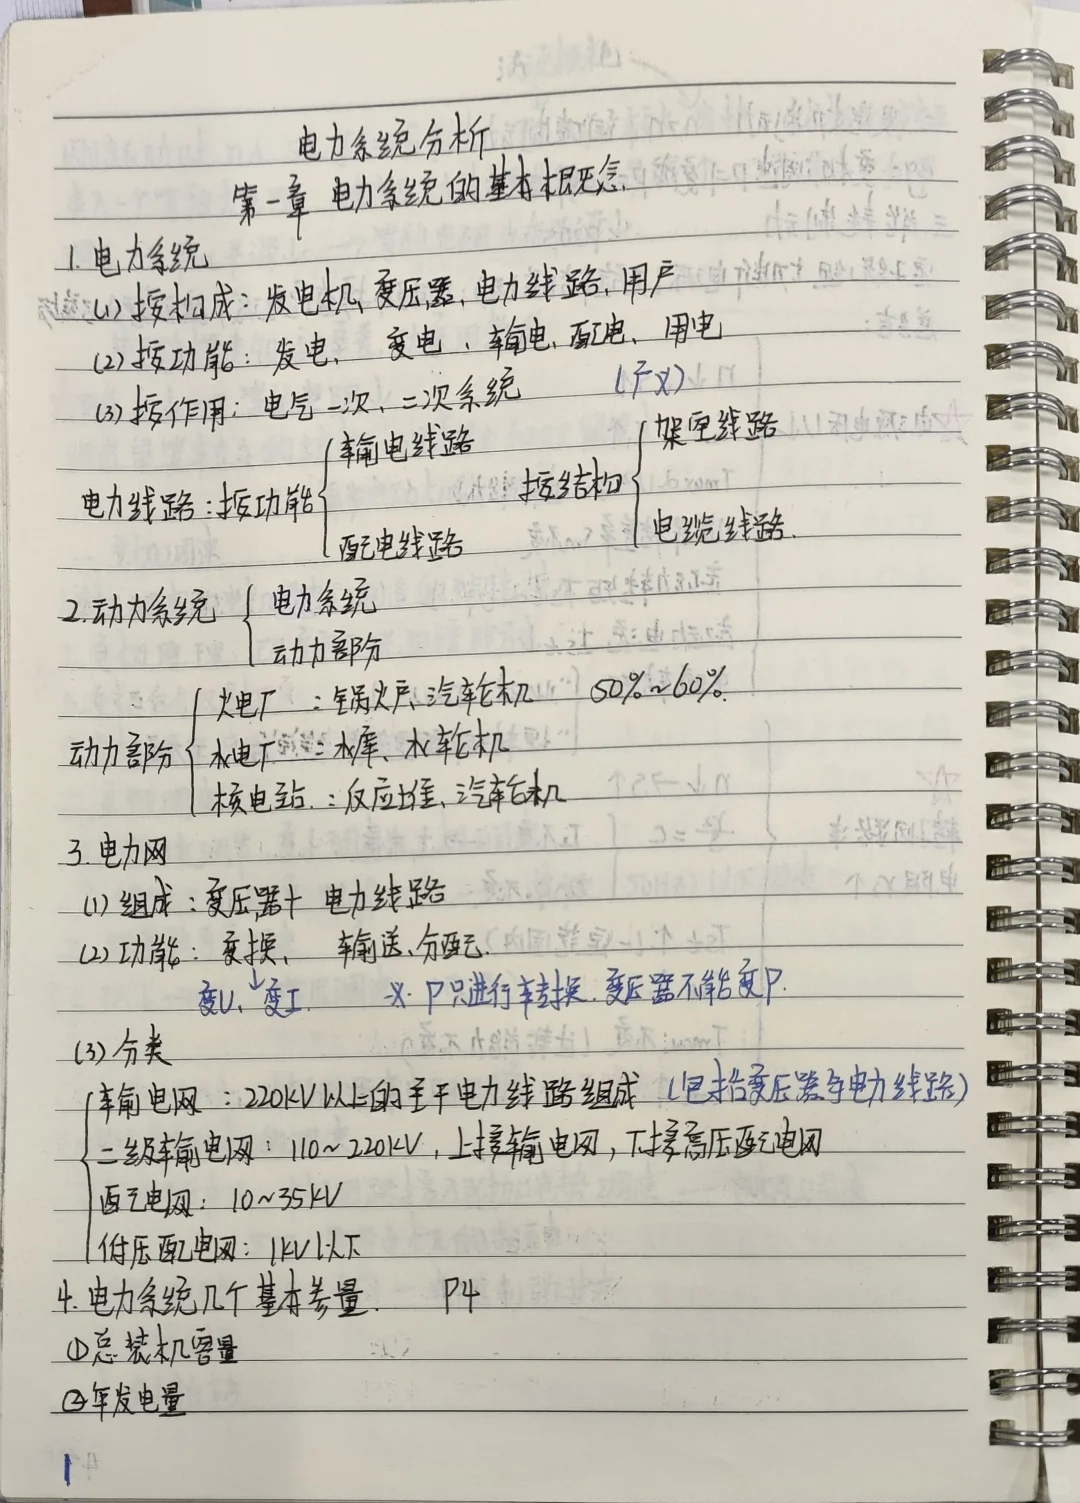 电力系统分析
第一章 电力系统的基本概念.
1. 电力系统
(1) 按构成：发电机、变压器、电力线路、用户
(2) 按功能：发电、变电、输电、配电、用电
(3) 按作用：电气一次、二次系统 (广义)
电力线路：按功能 { 输电线路 配电线路 按结构 { 架空线路 电缆线路.
2. 动力系统 { 电力系统 动力部分
动力部分 { 火电厂：锅炉、汽轮机 50%~60%.
水电厂：水库、水轮机
核电站.：反应堆、汽轮机
3. 电力网
(1) 组成：变压器+电力线路
(2) 功能：变换、输送、分配.
↓
变U、变I. ※. P只进行转换.变压器不能变P.
(3) 分类
输电网：220kV以上的主干电力线路组成 (包括变压器与电力线路)
二级输电网：110~220kV，上接输电网，下接高压配电网
配电网：10~35kV
低压配电网：1kV以下
4. 电力系统几个基本参量. P4
①总装机容量
②年发电量
1